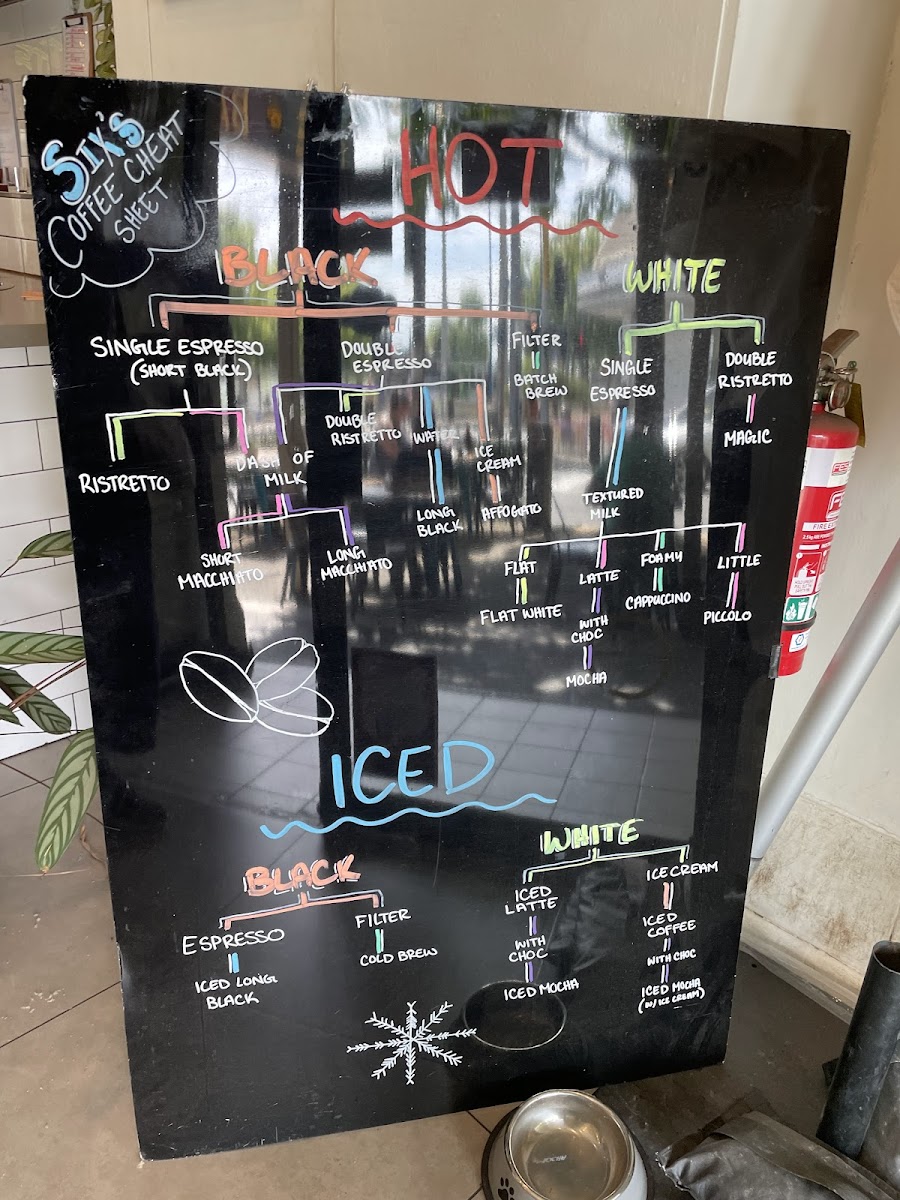 SIX'S
COFFEE CHEAT
SHEET
HOT
BLACK
SINGLE ESPRESSO
(SHORT BLACK)
DOUBLE
ESPRESSO
FILTER
BATCH
BREW
RISTRETTO
DASH OF
MILK
DOUBLE
RISTRETTO
WATER
ICE
CREAM
SHORT
MACCHIATO
LONG
MACCHIATO
LONG
BLACK
AFFOGATO
WHITE
SINGLE
ESPRESSO
DOUBLE
RISTRETTO
MAGIC
TEXTURED
MILK
FLAT
FLAT WHITE
LATTE
WITH
CHOC
MOCHA
FOAMY
CAPPUCCINO
LITTLE
PICCOLO
ICED
BLACK
ESPRESSO
ICED LONG
BLACK
FILTER
COLD BREW
WHITE
ICED
LATTE
WITH
CHOC
ICED MOCHA
ICE CREAM
ICED
COFFEE
WITH CHOC
ICED MOCHA
(W/ ICE CREAM)